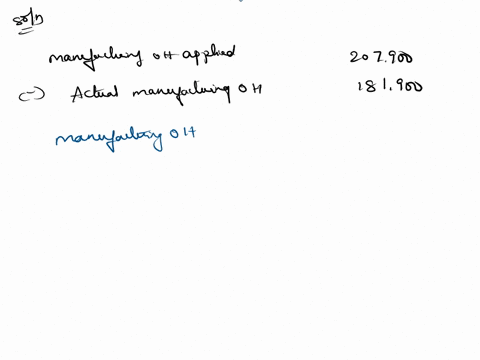 soln
manufacturing OH applied 207.900
(-) Actual manufacturing OH 181.900
manufacturing OH